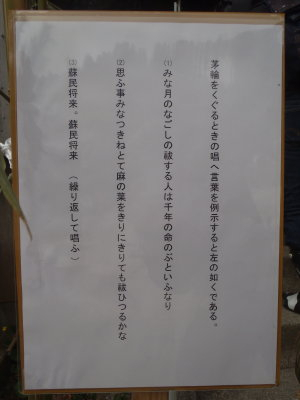 茅輪をくぐるときの唱へ言葉を例示すると左の如くである。
(1) みな月のなごしの祓する人は千年の命のぶといふなり
(2) 思ふ事みなつきねとて麻の葉をきりにきりても祓ひつるかな
(3) 蘇民将来。蘇民将来 (繰り返して唱ふ)